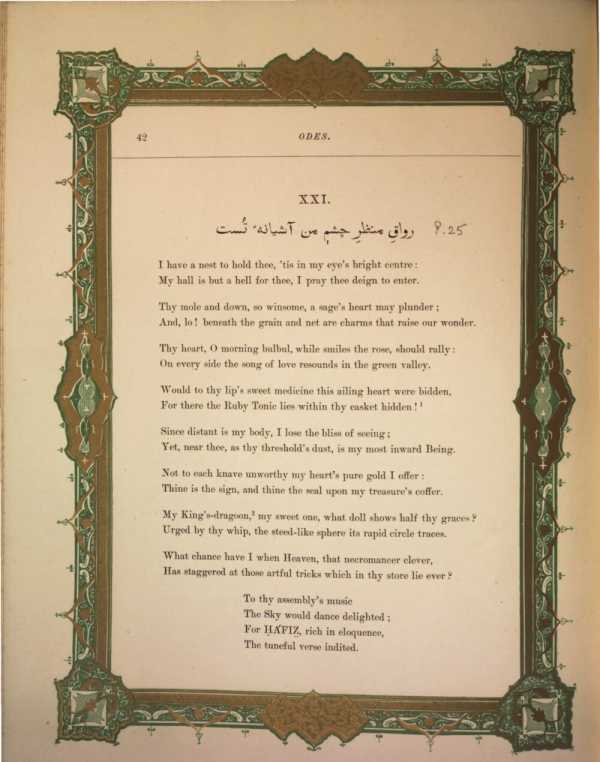 42
ODES.
XXI.
رواقِ منظرِ چشمِ من آشیانهٔ تُست
P.25
I have a nest to hold thee, 'tis in my eye's bright centre:
My hall is but a hell for thee, I pray thee deign to enter.
Thy mole and down, so winsome, a sage's heart may plunder;
And, lo! beneath the grain and net are charms that raise our wonder.
Thy heart, O morning bulbul, while smiles the rose, should rally:
On every side the song of love resounds in the green valley.
Would to thy lip's sweet medicine this ailing heart were bidden,
For there the Ruby Tonic lies within thy casket hidden!¹
Since distant is my body, I lose the bliss of seeing;
Yet, near thee, as thy threshold's dust, is my most inward Being.
Not to each knave unworthy my heart's pure gold I offer:
Thine is the sign, and thine the seal upon my treasure's coffer.
My King's-dragoon,² my sweet one, what doll shows half thy graces?
Urged by thy whip, the steed-like sphere its rapid circle traces.
What chance have I when Heaven, that necromancer clever,
Has staggered at those artful tricks which in thy store lie ever?
To thy assembly's music
The Sky would dance delighted;
For ḤÁFIẒ, rich in eloquence,
The tuneful verse indited.